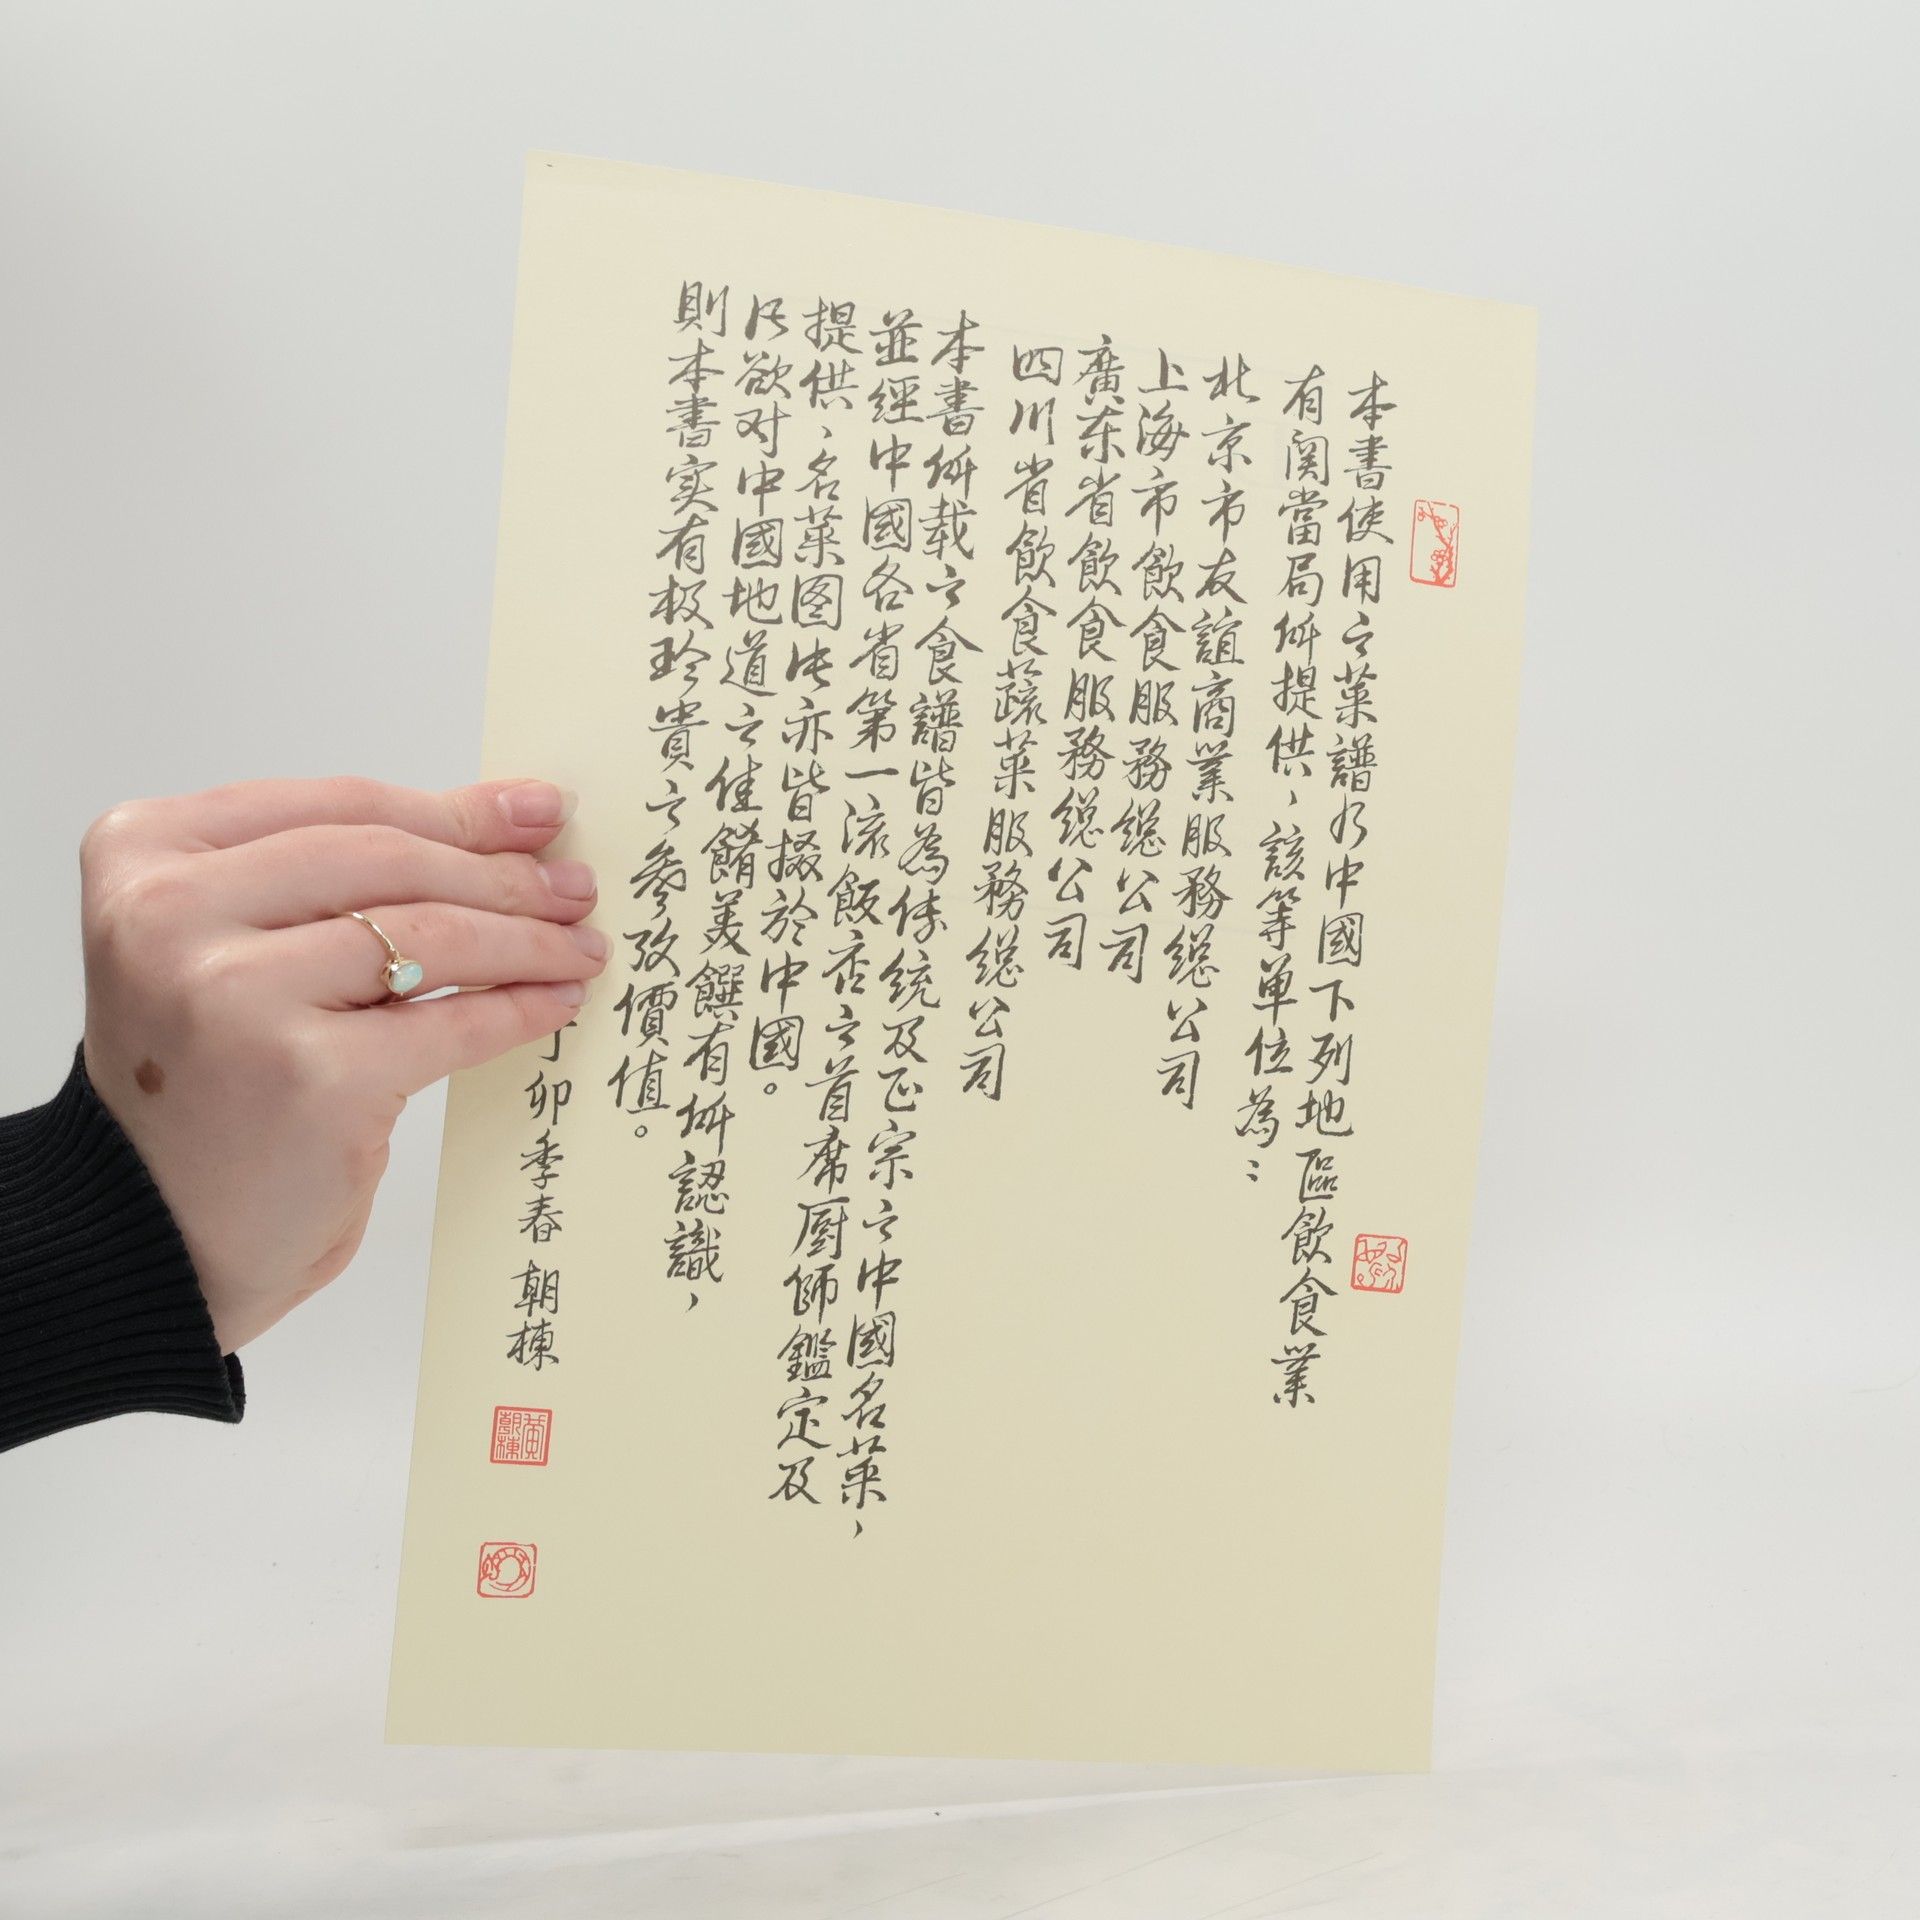 本書使用之菜譜乃中國下列地區飲食業
有関當局所提供、該等単位為：
北京市友誼商業服務總公司
上海市飲食服務總公司
廣东省飲食服務總公司
四川省飲食蔬菜服務總公司
本書所载之食譜皆為傳統及正宗之中國名菜，
並經中國各省第一流飯店之首席厨師鑑定及
提供、名菜图片亦皆掇於中國。
凡欲对中國地道之佳餚美饌有所認識，
則本書实有极珍貴之參攷價值。
丁卯季春 朝棟
黃朝棟